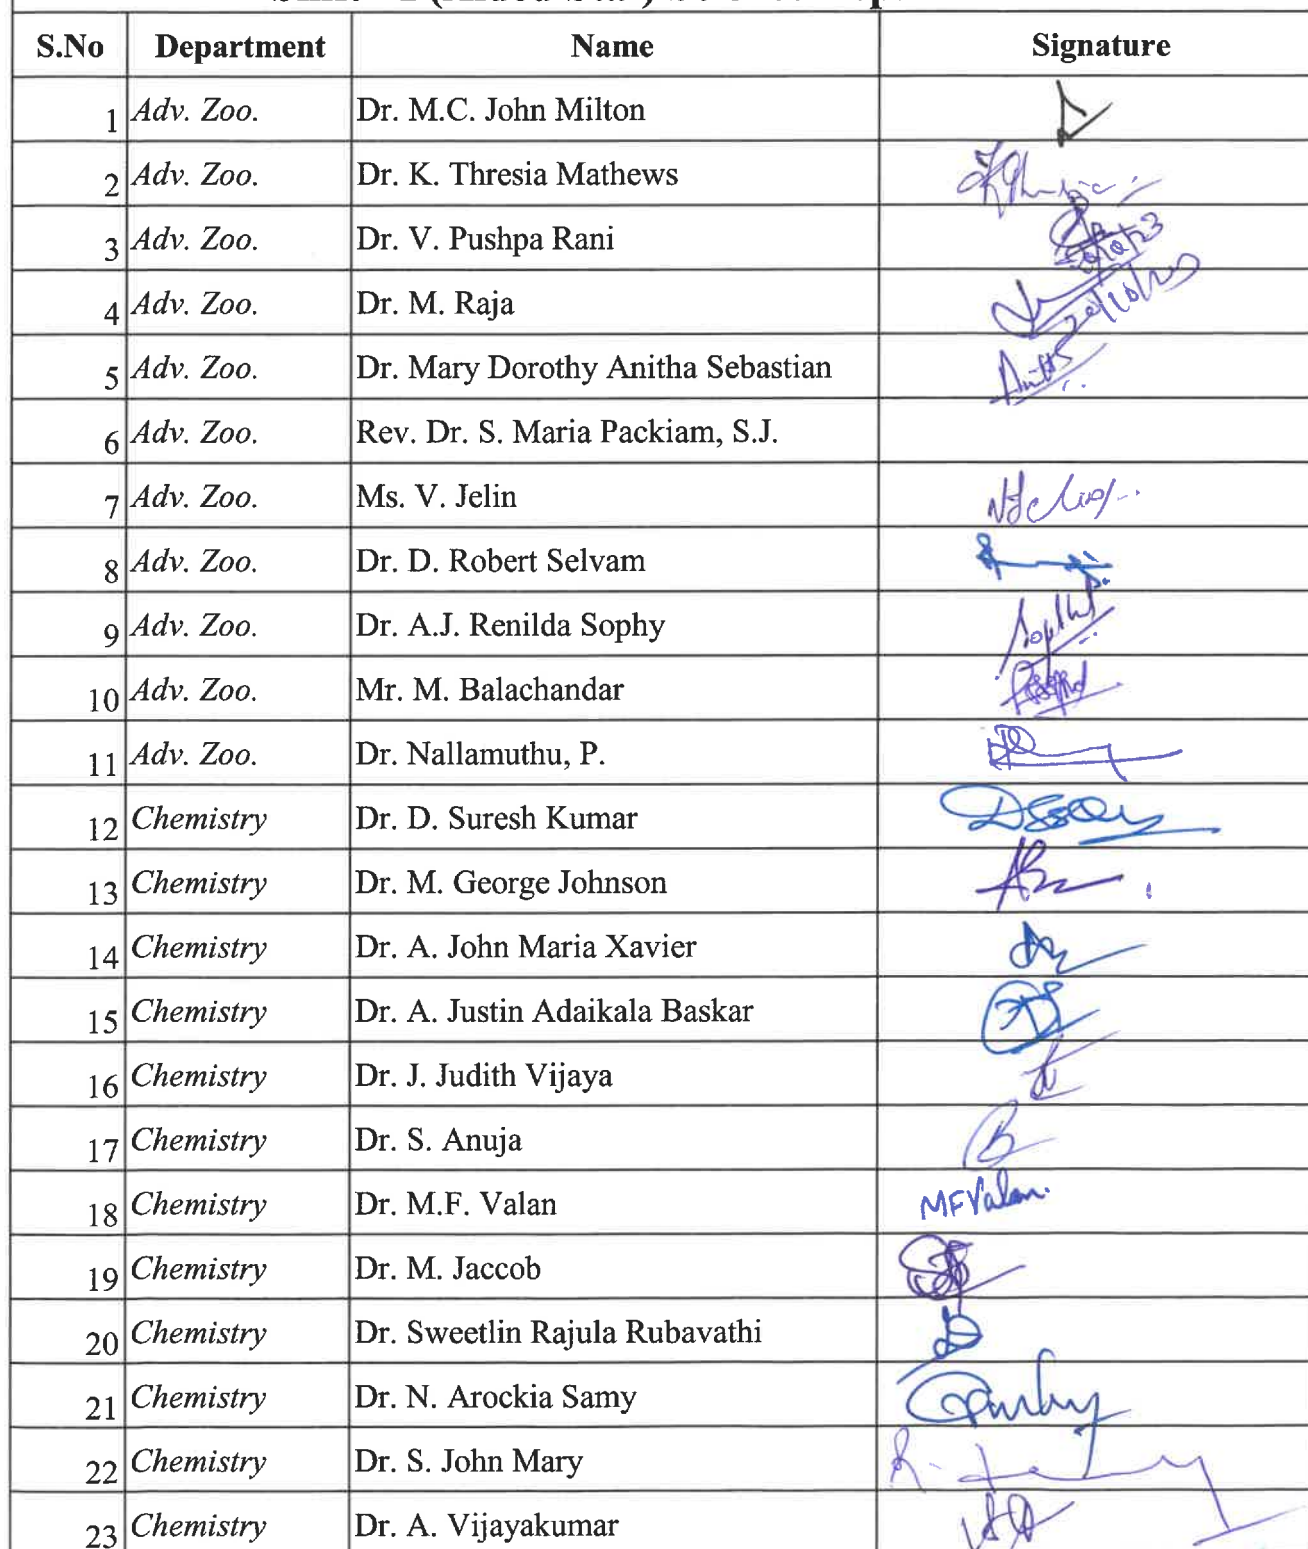 S.No Department Name Signature
1 Adv. Zoo. Dr. M.C. John Milton
2 Adv. Zoo. Dr. K. Thresia Mathews
3 Adv. Zoo. Dr. V. Pushpa Rani
4 Adv. Zoo. Dr. M. Raja
5 Adv. Zoo. Dr. Mary Dorothy Anitha Sebastian
6 Adv. Zoo. Rev. Dr. S. Maria Packiam, S.J.
7 Adv. Zoo. Ms. V. Jelin
8 Adv. Zoo. Dr. D. Robert Selvam
9 Adv. Zoo. Dr. A.J. Renilda Sophy
10 Adv. Zoo. Mr. M. Balachandar
11 Adv. Zoo. Dr. Nallamuthu, P.
12 Chemistry Dr. D. Suresh Kumar
13 Chemistry Dr. M. George Johnson
14 Chemistry Dr. A. John Maria Xavier
15 Chemistry Dr. A. Justin Adaikala Baskar
16 Chemistry Dr. J. Judith Vijaya
17 Chemistry Dr. S. Anuja
18 Chemistry Dr. M.F. Valan MFValan.
19 Chemistry Dr. M. Jaccob
20 Chemistry Dr. Sweetlin Rajula Rubavathi
21 Chemistry Dr. N. Arockia Samy
22 Chemistry Dr. S. John Mary
23 Chemistry Dr. A. Vijayakumar